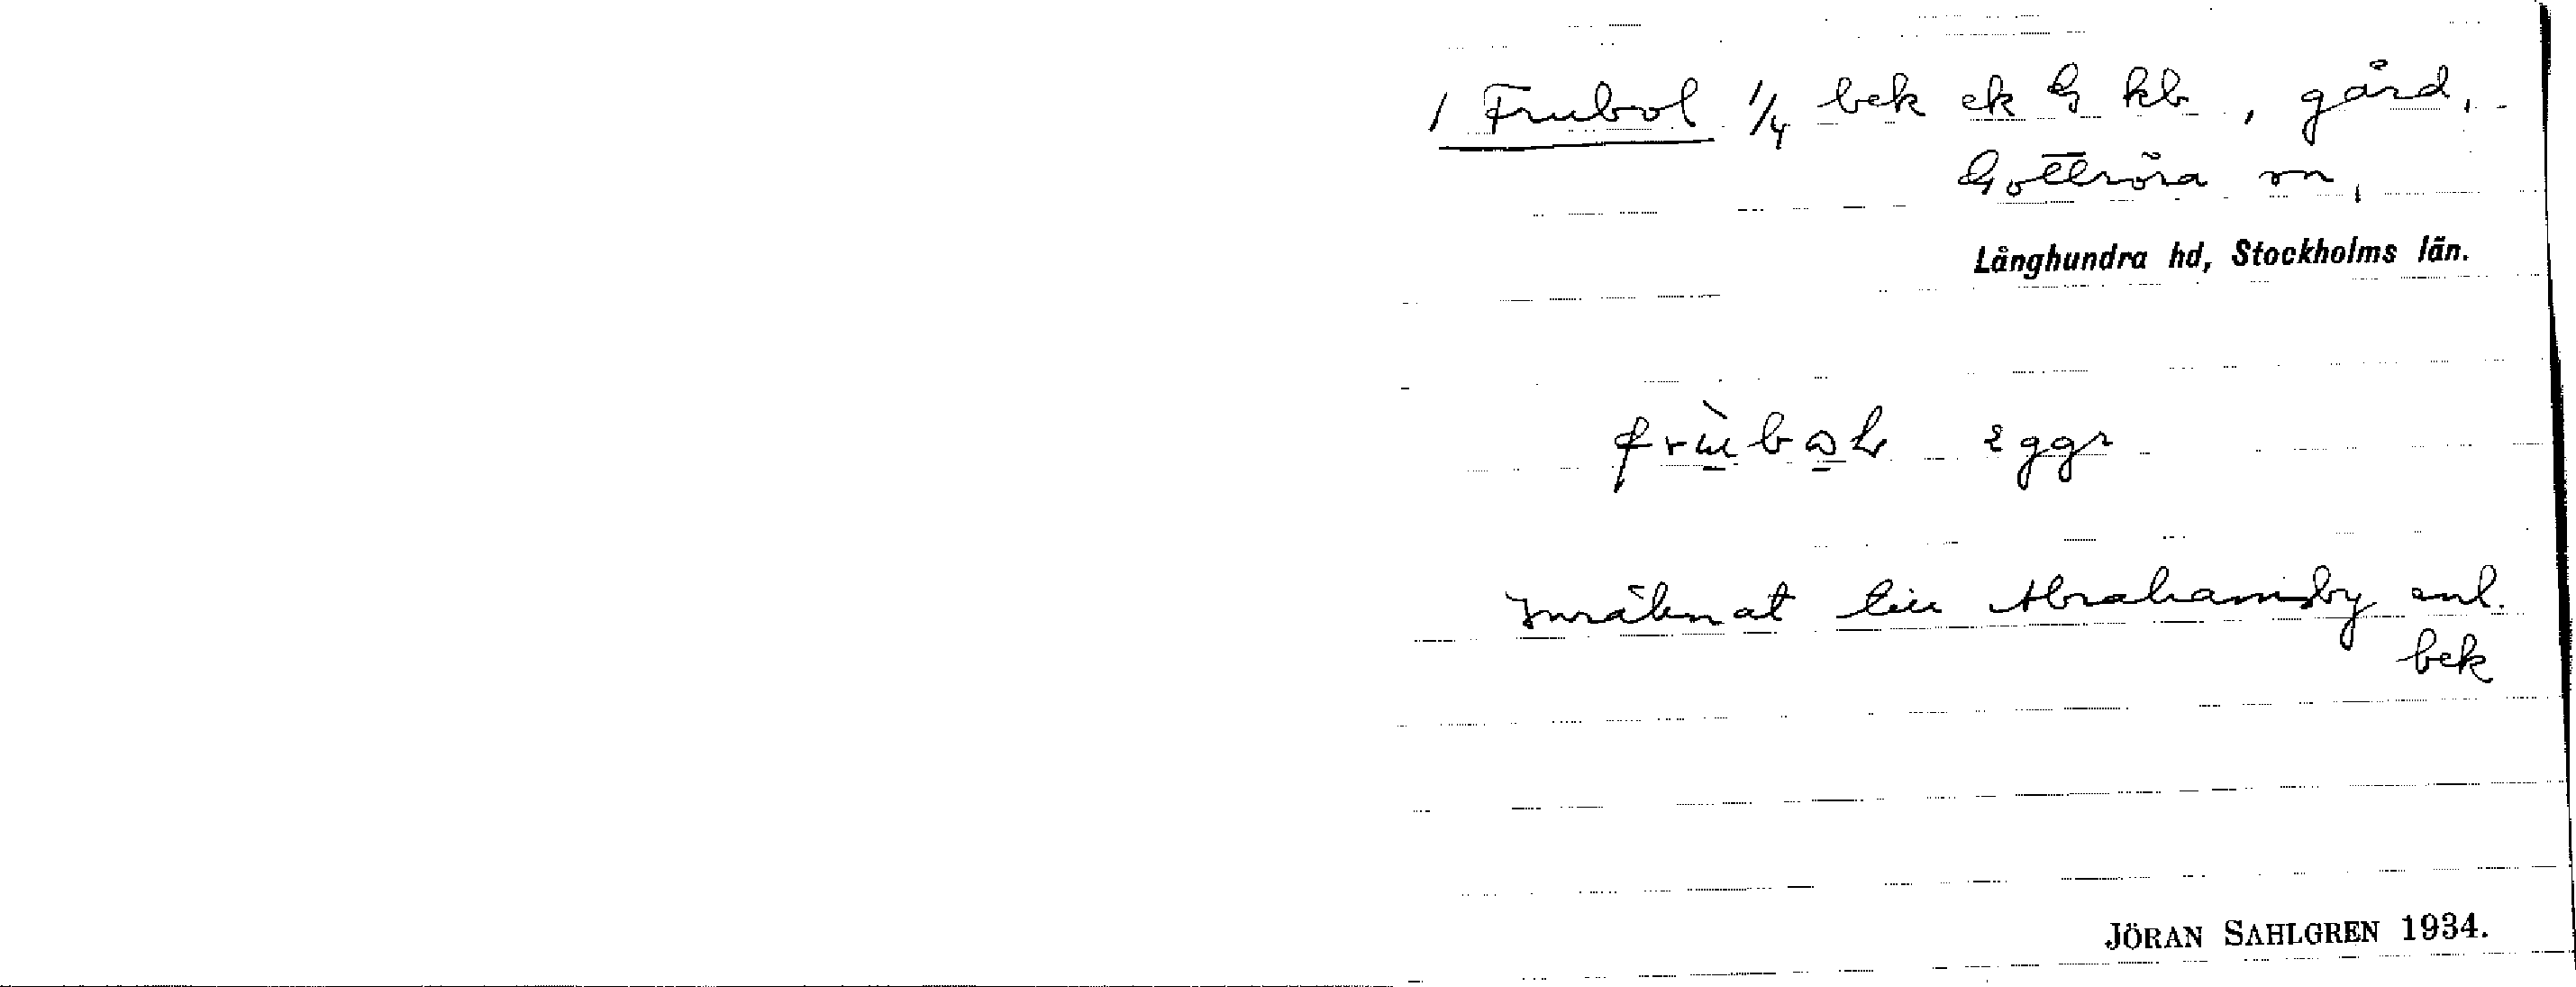 1 Frubol 1/4 bek ek G kb, gård,
Gottröra sn,
Långhundra hd, Stockholms län.
frùboł 2 ggr
Inräknat till Abrahamsby enl.
bek
JÖRAN SAHLGREN 1934.